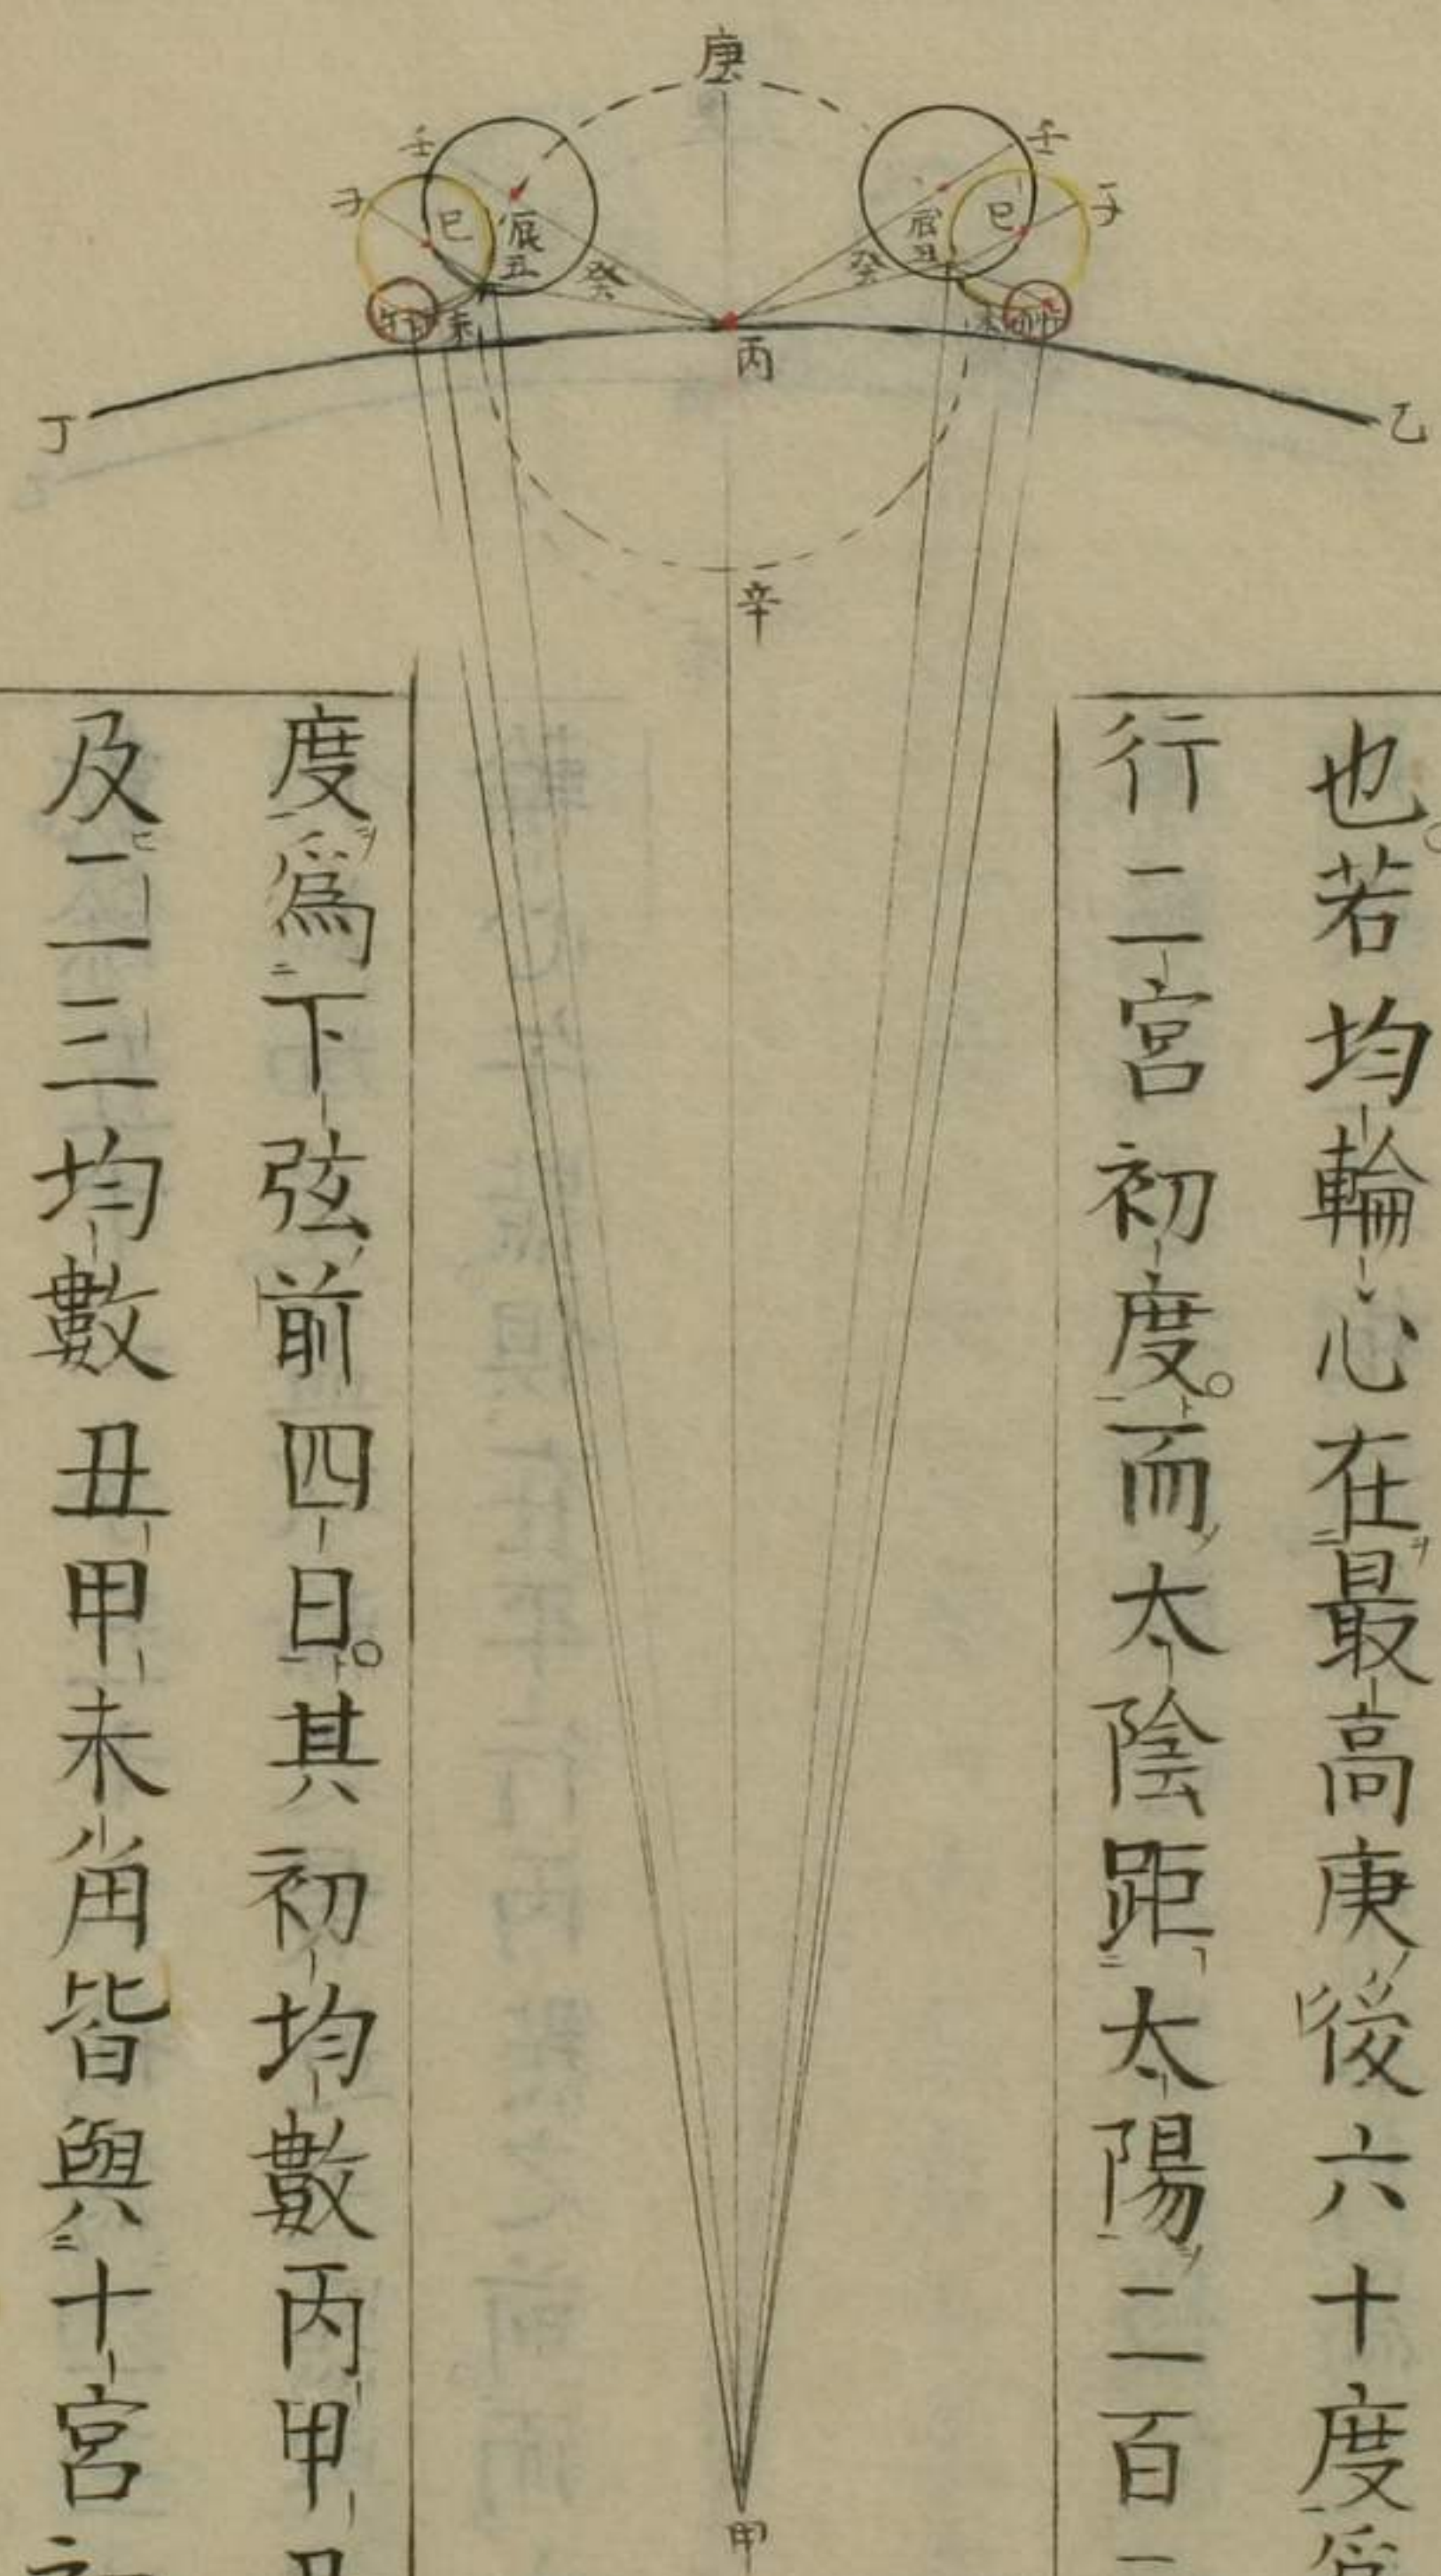 庚
壬
子
巳
辰
丑
癸
午
未
壬
子
巳
辰
丑
癸
未
午
丙
丁
乙
辛
也。若均輪心在最高庚後六十度為
行二宮初度。而太陰距太陽二百一
度為下弦前四日。其初均數丙甲丑
及二三均數丑甲未角皆與十宮初
甲